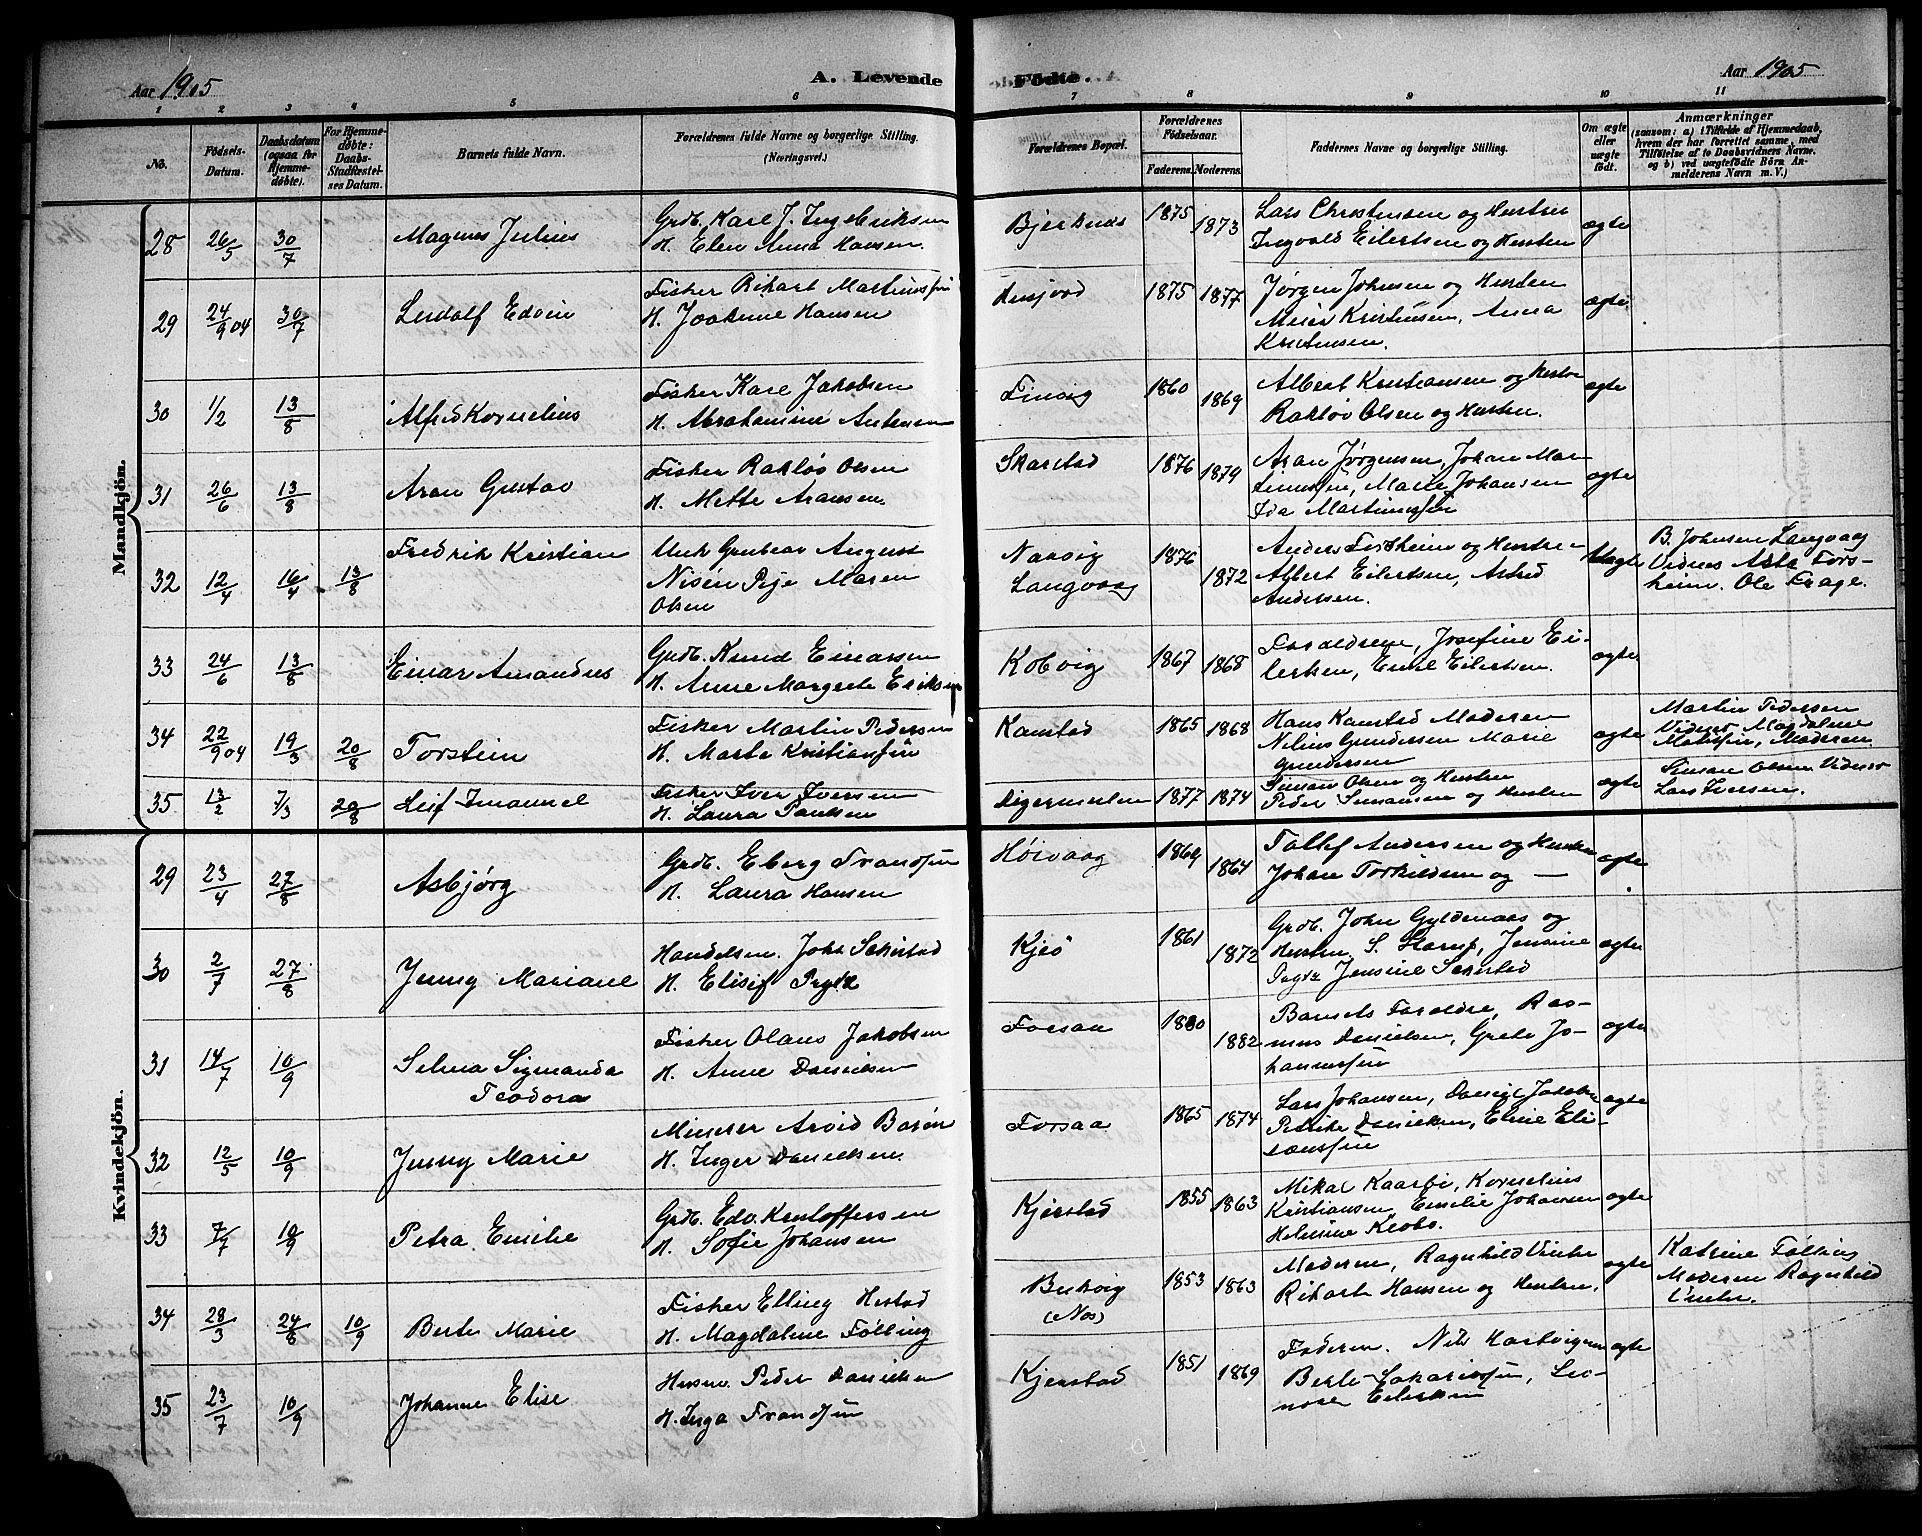 Aar 1905
A. Levende
Fødte.
Aar 1905
1 2 3 4 5 6 7 8 9 10 11
No.
Fødsels-
Datum.
Daabsdatum
(ogsaa for
Hjemme-
døbte).
For Hjemme-
døbte:
Daabs-
Stadfæstel-
ses Datum.
Barnets fulde Navn.
Forældrenes fulde Navne og borgerlige Stilling.
(Næringsvei.)
Forældrenes Bopæl.
Forældrenes
Fødselsaar.
Faderens. Moderens.
Faddernes Navne og borgerlige Stilling.
Om ægte
eller
uægte
født.
Anmærkninger
(saasom: a) i Tilfælde af Hjemmedaab,
hvem der har forrettet samme, med
Tilføielse af to Daabsvidners Navne,
og b) ved uægtefødte Børn An-
melderens Navn m. V.)
Mandkjön.
28 26/5 30/7 Magnus Julius
Grdb. Karl J. Ingebriksen
H. Elen Anna Hansen
1875 1873
Lars Christensen og Hustru
Ingvald Eilertsen og Hustru
ægte
29 24/9 04 30/7 Edvin
Fisker Rikart Martinussen
H. Joakime Hansen
1875 1877
Jørgen Johnsen og Hustru
Meier Kristensen, Anna
Kristensen.
ægte
30 1/2 13/8 Alfred Kornelius
Fisker Karl Jakobsen
H. Abrahamine Antonsen
Finvig 1860 1869
Albert Kristiansen og Hustru
Rakløv Olsen og Hustru.
ægte
31 26/6 13/8 Aron Gustav
Fisker Rakløv Olsen
H. Mette Aronsen
Skarstad 1876 1879
Aron Jørgensen, Johan Mar-
tinussen, Marie Johansen
Ida Martinussen
ægte
32 12/4 16/4 13/8 Fredrik Kristian
Unk Grubear August
Nisen Pige Maren
Olsen
Narvig
Langvaag
1876 1872
Anders Forsheim og Hustru
Albert Eilertsen, Astrid
Andersen.
Uægte
B. Johnsen Langvaag
Vidnes Asta Fors-
heim. Ole Frage.
33 24/6 13/8 Einar Amandus
Grdb. Knud Einarsen
H. Anne Margrete Eriksen
Kobvig 1867 1868
Foraldrene, Josefine Ei-
lertsen, Emil Eilertsen.
ægte
34 22/9 04 19/3 20/8 Torstein
Fisker Martin Pedersen
H. Marta Kristiansen
Kanstad 1865 1868
Hans Kanstad Moderen
Nilius Gundersen Marie
Gundersen
ægte
Martin Pedersen
Vidner Magdalene
Moderen
35 13/2 7/3 20/8 Leif Imanuel
Fisker Iver Iversen
H. Laura Paulsen
Digermulen 1877 1874
Simon Olsen og Hustru
Peder Simonsen og Hustru
ægte
Simon Olsen Vidner
Lars Iversen.
Kvindekjön.
29 23/4 27/8 Asbjørg
Grdb. Eberg Frandsen
H. Laura Hansen
Høivaag 1864 1864
Tollef Andersen og Hustru
Johan Torkildsen og —
ægte
30 2/7 27/8 Jenny Mariane
Handelsm. Joh. Schistad
H. Elisif Prytz
Kjeø 1861 1872
Grdb. John Gyldenaas og
Hustru S. Starup, Jensine
Prytz Jensine Schistad
ægte
31 14/7 10/9 Selma Sigmanda
Teodora
Fisker Olaus Jakobsen
H. Anne Danielsen
Forsaa 1880 1882
Barnets Foraldre, Ras-
mus Danielsen, Grete Jo-
hannessen
ægte
32 12/5 10/9 Jenny Marie
Minerer Arvid Barøn
H. Inger Danielsen
Forsaa 1865 1874
Lars Johansen, Daniel Jakobs
Petrike Danielsen, Eline Eli-
ægte
33 7/7 10/9 Petra Emilie
Grdb. Edv. Kristoffersen
H. Sofie Johansen
Kjerstad 1855 1863
Mikal Kaarbø, Kornelius
Kristiansen, Emilie Johansen
Helmine Klobo.
ægte
34 28/3 24/6 10/9 Berte Marie
Fisker Elling Hestad
H. Magdalene Følling
Bukvig
(Nos)
1853 1863
Moderen, Ragnhild Vinter
Rikart Hansen og Hustru.
ægte
Katrine Følling
Moderen Ragnhild
Vinter.
35 23/7 10/9 Johanne Elise
Husm. Peder Danielsen
H. Inga Frandsen
Kjerstad 1851 1869
Faderen. Nils Hartvigsen
Berle Sakariassen, Le-
nore Eilertsen
ægte